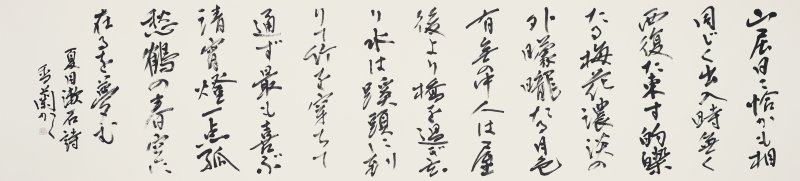 山居日々恰かも相
同じく出入時無く
西復た東す的皪
たる梅花濃淡の
外朦朧たる月色
有無の中人は屋
後より橋を過ぎ去
り水は蹊頭に到
りて竹を穿ちて
通ず最も喜ぶ
清宵燈一点孤
愁鶴の春空に
在るを夢む
夏目漱石詩
かく